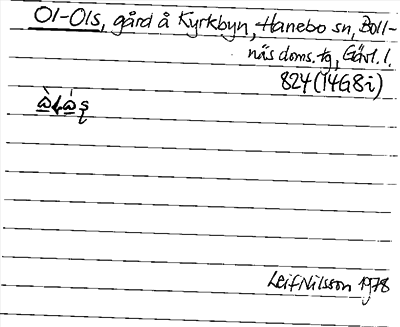 Ol-Ols, gård å Kyrkbyn, Hanebo sn, Boll-
näs doms. tg, Gävl. l.
824 (14G8i)
Leif Nilsson 1978